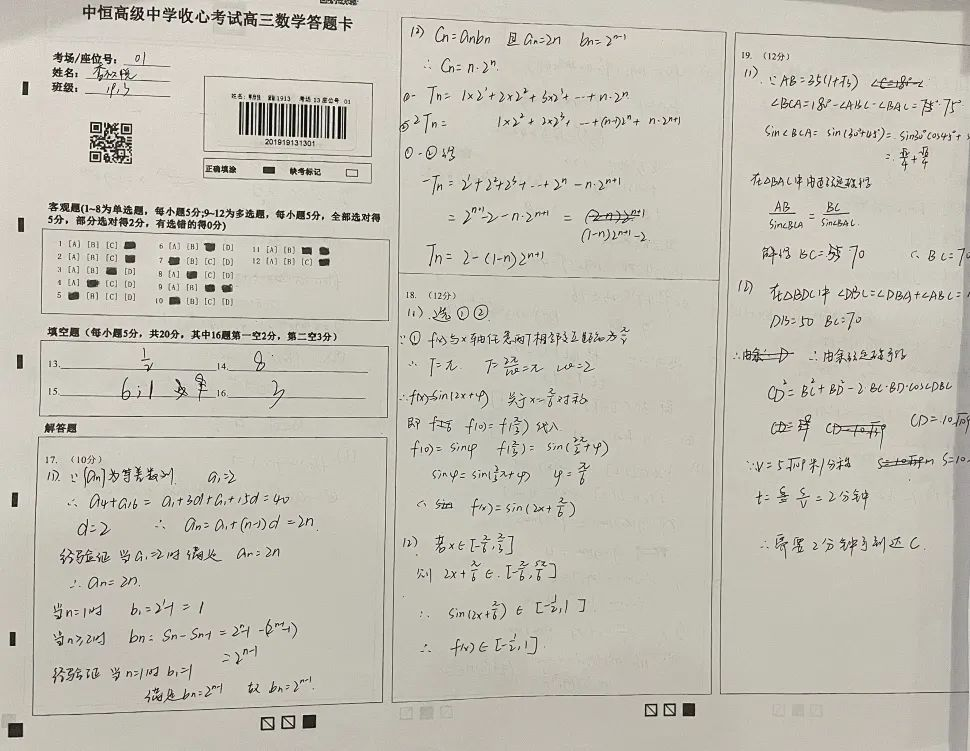 中恒高级中学收心考试高三数学答题卡
考场/座位号: 01
姓名:
班级: 1913
班级 1913 考场 13 座位号 01
201919131301
正确填涂 缺考标记
客观题(1~8为单选题，每小题5分;9~12为多选题，每小题5分，全部选对得
5分，部分选对得2分，有选错的得0分)
1 [A] [B] [C]
2 [A] [B] [C]
3 [A] [B] [D]
4 [A] [C] [D]
5 [B] [C] [D]
6 [A] [B] [D]
7 [B] [C] [D]
8 [A] [C] [D]
9 [A] [B]
10 [B] [C] [D]
11 [A] [B]
12 [A] [B] [C]
填空题（每小题5分，共20分，其中16题第一空2分，第二空3分）
13. 1/2 14. 8
15. 6;1 16. 3
解答题
17. （10分）
(1) ∵{an}为等差数列 a1=2
∴ a4+a16=a1+3d+a1+15d=40
d=2 ∴ an=a1+(n-1)d=2n
经验证 当a1=2时满足 an=2n
∴ an=2n.
当n=1时 b1=2^1-1=1
当n≥2时 bn=Sn-Sn-1=2^n-1-(2^{n-1}-1)
=2^{n-1}
经验证 当n=1时 b1=1
满足bn=2^{n-1} 故 bn=2^{n-1}.
(2) Cn=anbn 且an=2n bn=2^{n-1}
∴ Cn=n·2^n.
①- Tn=1×2^1+2×2^2+3×2^3+…+n·2^n
② 2Tn= 1×2^2+2×2^3+…+(n-1)2^n+n·2^{n+1}
①-②得
-Tn=2^1+2^2+2^3+…+2^n-n·2^{n+1}
=2^{n+1}-2-n·2^{n+1}=
(1-n)2^{n+1}-2.
Tn=2-(1-n)2^{n+1}
18. （12分）
(1). 选①②
∴T=π. T=2π/ω=π ω=2
∴f(x)=sin(2x+φ)
即 f(0)=f(π/3)代入
f(0)=sinφ
sinφ=sin(2/3π+φ) φ=π/6
f(x)=sin(2x+π/6)
(2) 若x∈[-π/6,π/3]
则 2x+π/6∈[-π/6,5π/6]
∴ sin(2x+π/6)∈[-1/2,1].
∴ f(x)∈[-1/2,1].
19. （12分）
(1). ∵AB=35(1+√3)
∠BCA=180°-∠ABC-∠BAC=75°
sin∠BCA=sin(30°+45°)=sin30°cos45°+
AB/sin∠BCA=BC/sin∠BAC.
解得BC=70
(2) 在△BDC中 ∠DBC=∠DBA+∠ABC=
DB=50 BC=70
∴由余弦定理得
CD²=BC²+BD²-2·BC·BD·cos∠DBC
CD=10√109
∵V=5√109米/分钟
t=S/V=2分钟
∴需要2分钟可到达C.